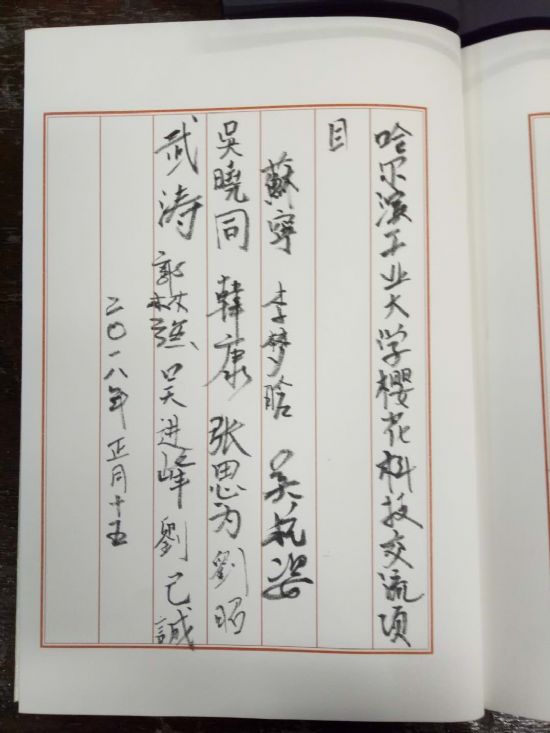 哈尔滨工业大学樱花科技交流项
目
蘇寧 李梦晗 吴凡姿
吳曉同 韓康 张思为 劉昭
武涛 郭林强 吴进峰 劉己誠
二〇一八年 正月十五